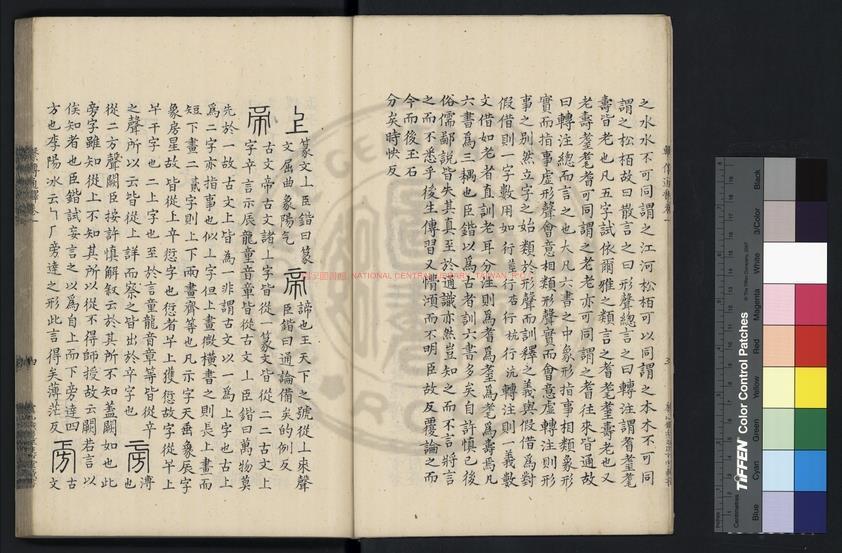 之水水不可同謂之江河松栢可以同謂之木木不可同
謂之松栢故曰散言之曰形聲總言之曰轉注謂耆耋耄
壽皆老也凡五字試依爾雅之類言之耆耄耋壽老也又
老壽耋耄耆可同謂之老老亦可同謂之耆往來皆通故
曰轉注總而言之也大凡六書之中象形指事相類象形
實而指事虛形聲會意相類形聲實而會意虛轉注則形
事之別然立字之始類於形聲而訓釋之義與假借爲對
假借則一字數用如行莖行杏行杭行沆轉注則一義數
文借如老者直訓老耳分注則爲耆爲耋爲耄爲壽焉凡
六書爲三耦也臣鍇以爲古者訓六書多矣自許慎已後
俗儒鄙說皆失其真至於通識亦然豈知之而不言將言
之而不悉乎後生傳習又懵須而不明臣故反覆論之而
今而後玉石
分矣時怏反
丄
篆文上臣鍇曰篆
文屈曲象陽气
帝
諦也王天下之號從丄朿聲
臣鍇曰通論備矣的例反
古文帝古文諸丄字皆從一篆文皆從二二古文上
字辛言示辰龍童音章皆從古文丄臣鍇曰萬物莫
先於一故古文上皆爲一非謂古文以一爲上字也古上
爲二字亦指事也似上字但上畫微橫書之則長上畫而
短下畫二貳字則上下兩畫齊等也凡示字天垂象辰字
象房星故皆從上辛愆字也愆者芉上獲愆故字從芉上
芉干字也二上字也至於言童龍音章等皆從辛
之聲所以云皆從上詳而察之皆出於辛字也
旁
溥也
從二方聲闕臣按許慎解叙云於其所不知蓋闕如也此
旁字雖知從上不知其所以從不得師授故云闕若言以
俟知者也臣鍇試妄言之以爲自上而下旁達四
方也李陽冰云乁厂旁達之形此言得矣薄茫反
古
文
NATIONAL CENTRAL LIBRARY, TAIWAN, R.O.C
TIFFEN Color Control Patches
© The Tiffen Company, 2007
Inches
Centimetres
Blue
Cyan
Green
Yellow
Red
Magenta
White
3/Color
Black